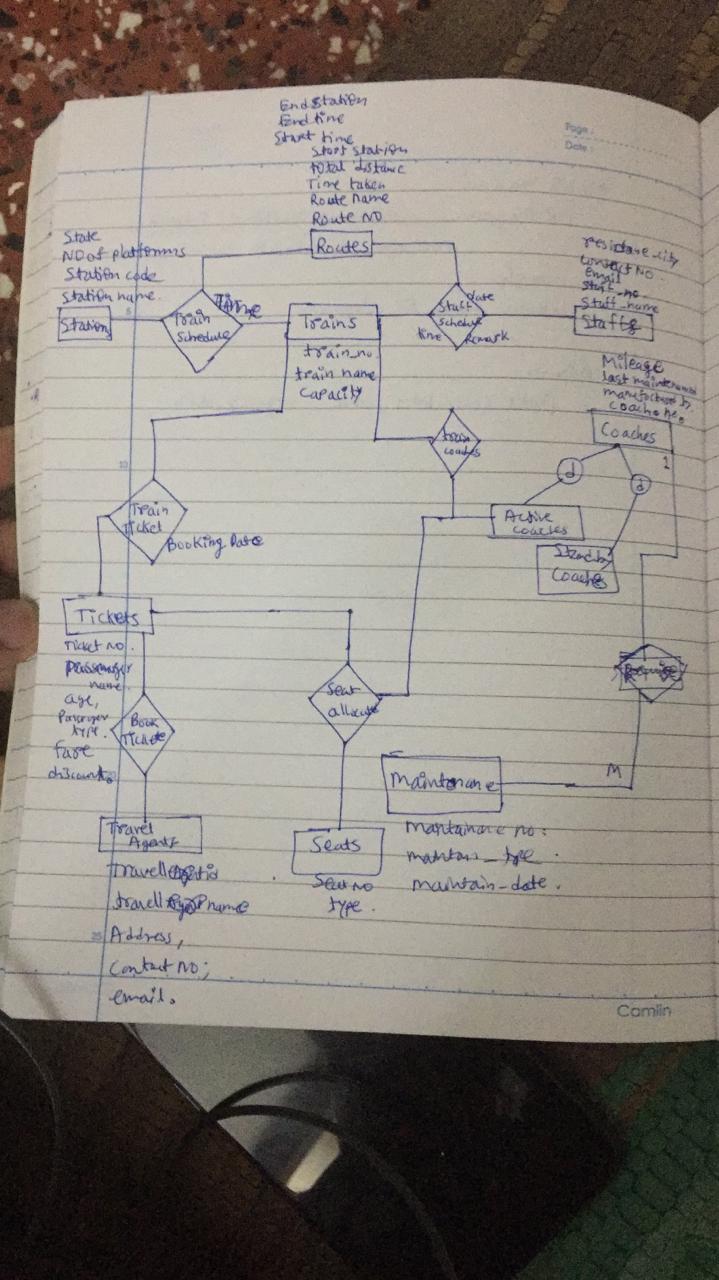 End station
End time
Start time
Start station
total distance
Time taken
Route name
Route NO
Page :
Date :
Routes
State
NO of platforms
Station code
Station name.
Station
Train
Schedule
Time
Trains
train_no.
train name
capacity
date
Staff
schedule
time
Remark
residence_city
contact NO.
email
Staff_no
Staff_name
Staffs
Mileage
last maintenance
manufactured by
coach no.
Coaches
1
d
d
train
coaches
Active
coaches
Standby
Coaches
Train
Ticket
Booking Date
Tickets
Ticket no.
passenger
name.
age,
Passenger
type.
fare
discount.
Book
Ticket
Seat
allocate
M
Maintenance
Maintainance no:
maintain_type.
maintain-date.
Travel
Agents
travell id
travell name
Address,
Contact NO;
email.
Seats
Seat NO
type.
5
10
25
Camlin